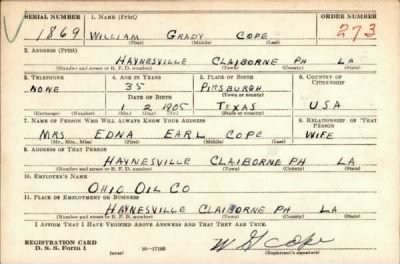 SERIAL NUMBER 1. NAME (Print) ORDER NUMBER
1869 WILLIAM GRADY COPE 273
(First) (Middle) (Last)
2. ADDRESS (Print)
HAYNESVILLE CLAIBORNE PH LA
(Number and street or R. F. D. number) (Town) (County) (State)
3. TELEPHONE 4. AGE IN YEARS 5. PLACE OF BIRTH 6. COUNTRY OF CITIZENSHIP
NONE 35 PITTSBURGH
(Town or county)
DATE OF BIRTH
1 2 1905 TEXAS USA
(Mo.) (Day) (Yr.) (State or country)
7. NAME OF PERSON WHO WILL ALWAYS KNOW YOUR ADDRESS 8. RELATIONSHIP OF THAT PERSON
MRS EDNA EARL COPE WIFE
(Mr., Mrs., Miss) (First) (Middle) (Last)
9. ADDRESS OF THAT PERSON
HAYNESVILLE CLAIBORNE PH LA
(Number and street or R. F. D. number) (Town) (County) (State)
10. EMPLOYER'S NAME
OHIO OIL CO
11. PLACE OF EMPLOYMENT OR BUSINESS
HAYNESVILLE CLAIBORNE PH LA
(Number and street or R. F. D. number) (Town) (County) (State)
I AFFIRM THAT I HAVE VERIFIED ABOVE ANSWERS AND THAT THEY ARE TRUE.
REGISTRATION CARD W G Cope
D. S. S. Form 1 (over) 16-17105 (Registrant's signature)